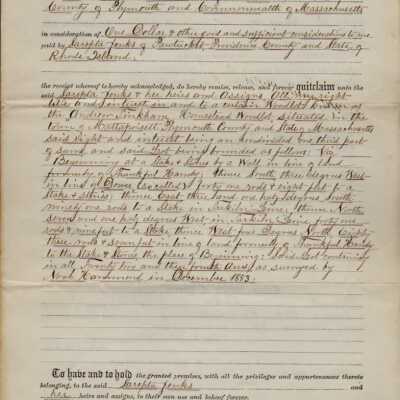 County of Plymouth and Commonwealth of Massachusetts
in consideration of One Dollar & other good and sufficient considerations to me
paid by Sarepta Jenks of Pawtucket Providence County and State of
Rhode Island.
the receipt whereof is hereby acknowledged, do hereby remise, release, and forever quitclaim unto the
said Sarepta Jenks & her heirs and Assigns, All my right
title and interest in and to a certain Woodlot known as
the Andrew Tinkham Homestead Woodlot, situated in the
town of Mattapoisett Plymouth County and State of Massachusetts
said right and interest being an undivided one third part
of same and said Lot being bounded as follows. Viz.
Beginning at a Stake & Stones by a Wall in line of land
formerly of Thankful Handy; thence South three degrees West
in line of (so called) forty one rods & eight feet to a
Stake & Stones; thence East three and one half degrees South
ninety one rods to a Stake in line; thence North
seven and one half degrees West in line forty one
rods & nine feet to a Stake thence West four Degrees North Eighty
three rods & seven feet in line of land formerly of Thankful Handy
to the Stake & Stones the place of Beginning: Said Lot containing
in all Twenty two and three fourth Acres as surveyed by
Noah Hammond in December 1853.
To have and to hold the granted premises, with all the privileges and appurtenances thereto
belonging, to the said Sarepta Jenks
and
her heirs and assigns, to their own use and behoof forever.